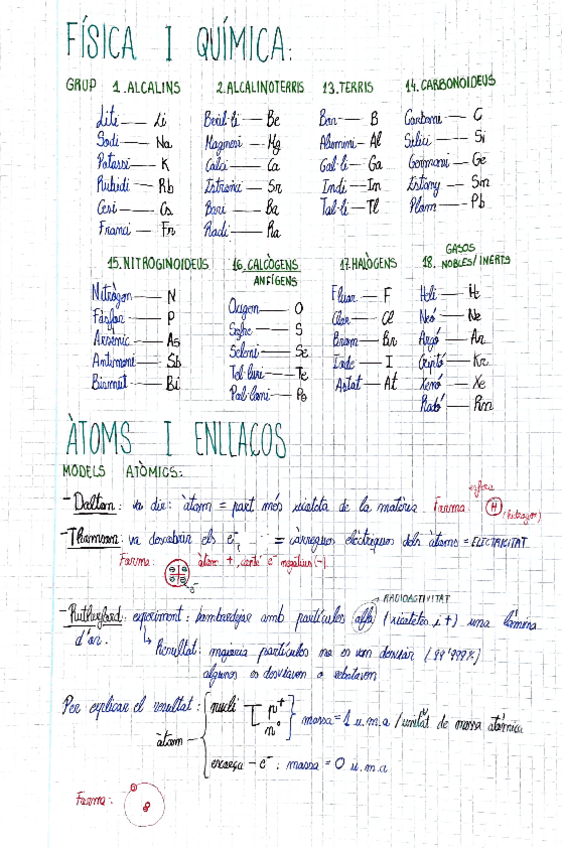 FÍSICA I QUÍMICA:
GRUP 1. ALCALINS
Liti — Li
Sodi — Na
Potassi — K
Rubidi — Rb
Cesi — Cs
Franci — Fr
2. ALCALINOTERRIS
Beril·li — Be
Magnesi — Mg
Calci — Ca
Estronci — Sr
Bari — Ba
Radi — Ra
13. TERRIS
Bor — B
Alumini — Al
Gal·li — Ga
Indi — In
Tal·li — Tl
14. CARBONOIDEUS
Carboni — C
Silici — Si
Germani — Ge
Estany — Sn
Plom — Pb
15. NITROGINOIDEUS
Nitrògen — N
Fòsfor — P
Arsènic — As
Antimoni — Sb
Bismut — Bi
16. CALCÒGENS
ANFÍGENS
Oxigen — O
Sofre — S
Seleni — Se
Tel·luri — Te
Pol·loni — Po
17. HALÒGENS
Fluor — F
Clor — Cl
Brom — Br
Iode — I
Astat — At
18. GASOS NOBLES/INERTS
Heli — He
Neó — Ne
Argó — Ar
Criptó — Kr
Xenó — Xe
Radó — Rn
ÀTOMS I ENLLAÇOS
MODELS ATÒMICS:
- Dalton: va dir: àtom = part més xicoteta de la matèria Forma: esfera H (hidrogen)
- Thomson: va descobrir els e⁻, = càrregues elèctriques dels àtoms = ELECTRICITAT
Forma: àtom +, conté e⁻ negatius (-).
RADIOACTIVITAT
- Rutherford: experiment: bombardejar amb partícules alfa (xicotetes i +) una làmina
d'or.
Resultat: majoria partícules no es van desviar (99'999%)
algunes es desviaven o rebotaven
Per explicar el resultat:
àtom
nucli p⁺ n° massa = 1 u.m.a / unitat de massa atòmica
escorça - e⁻: massa = 0 u.m.a
Forma: